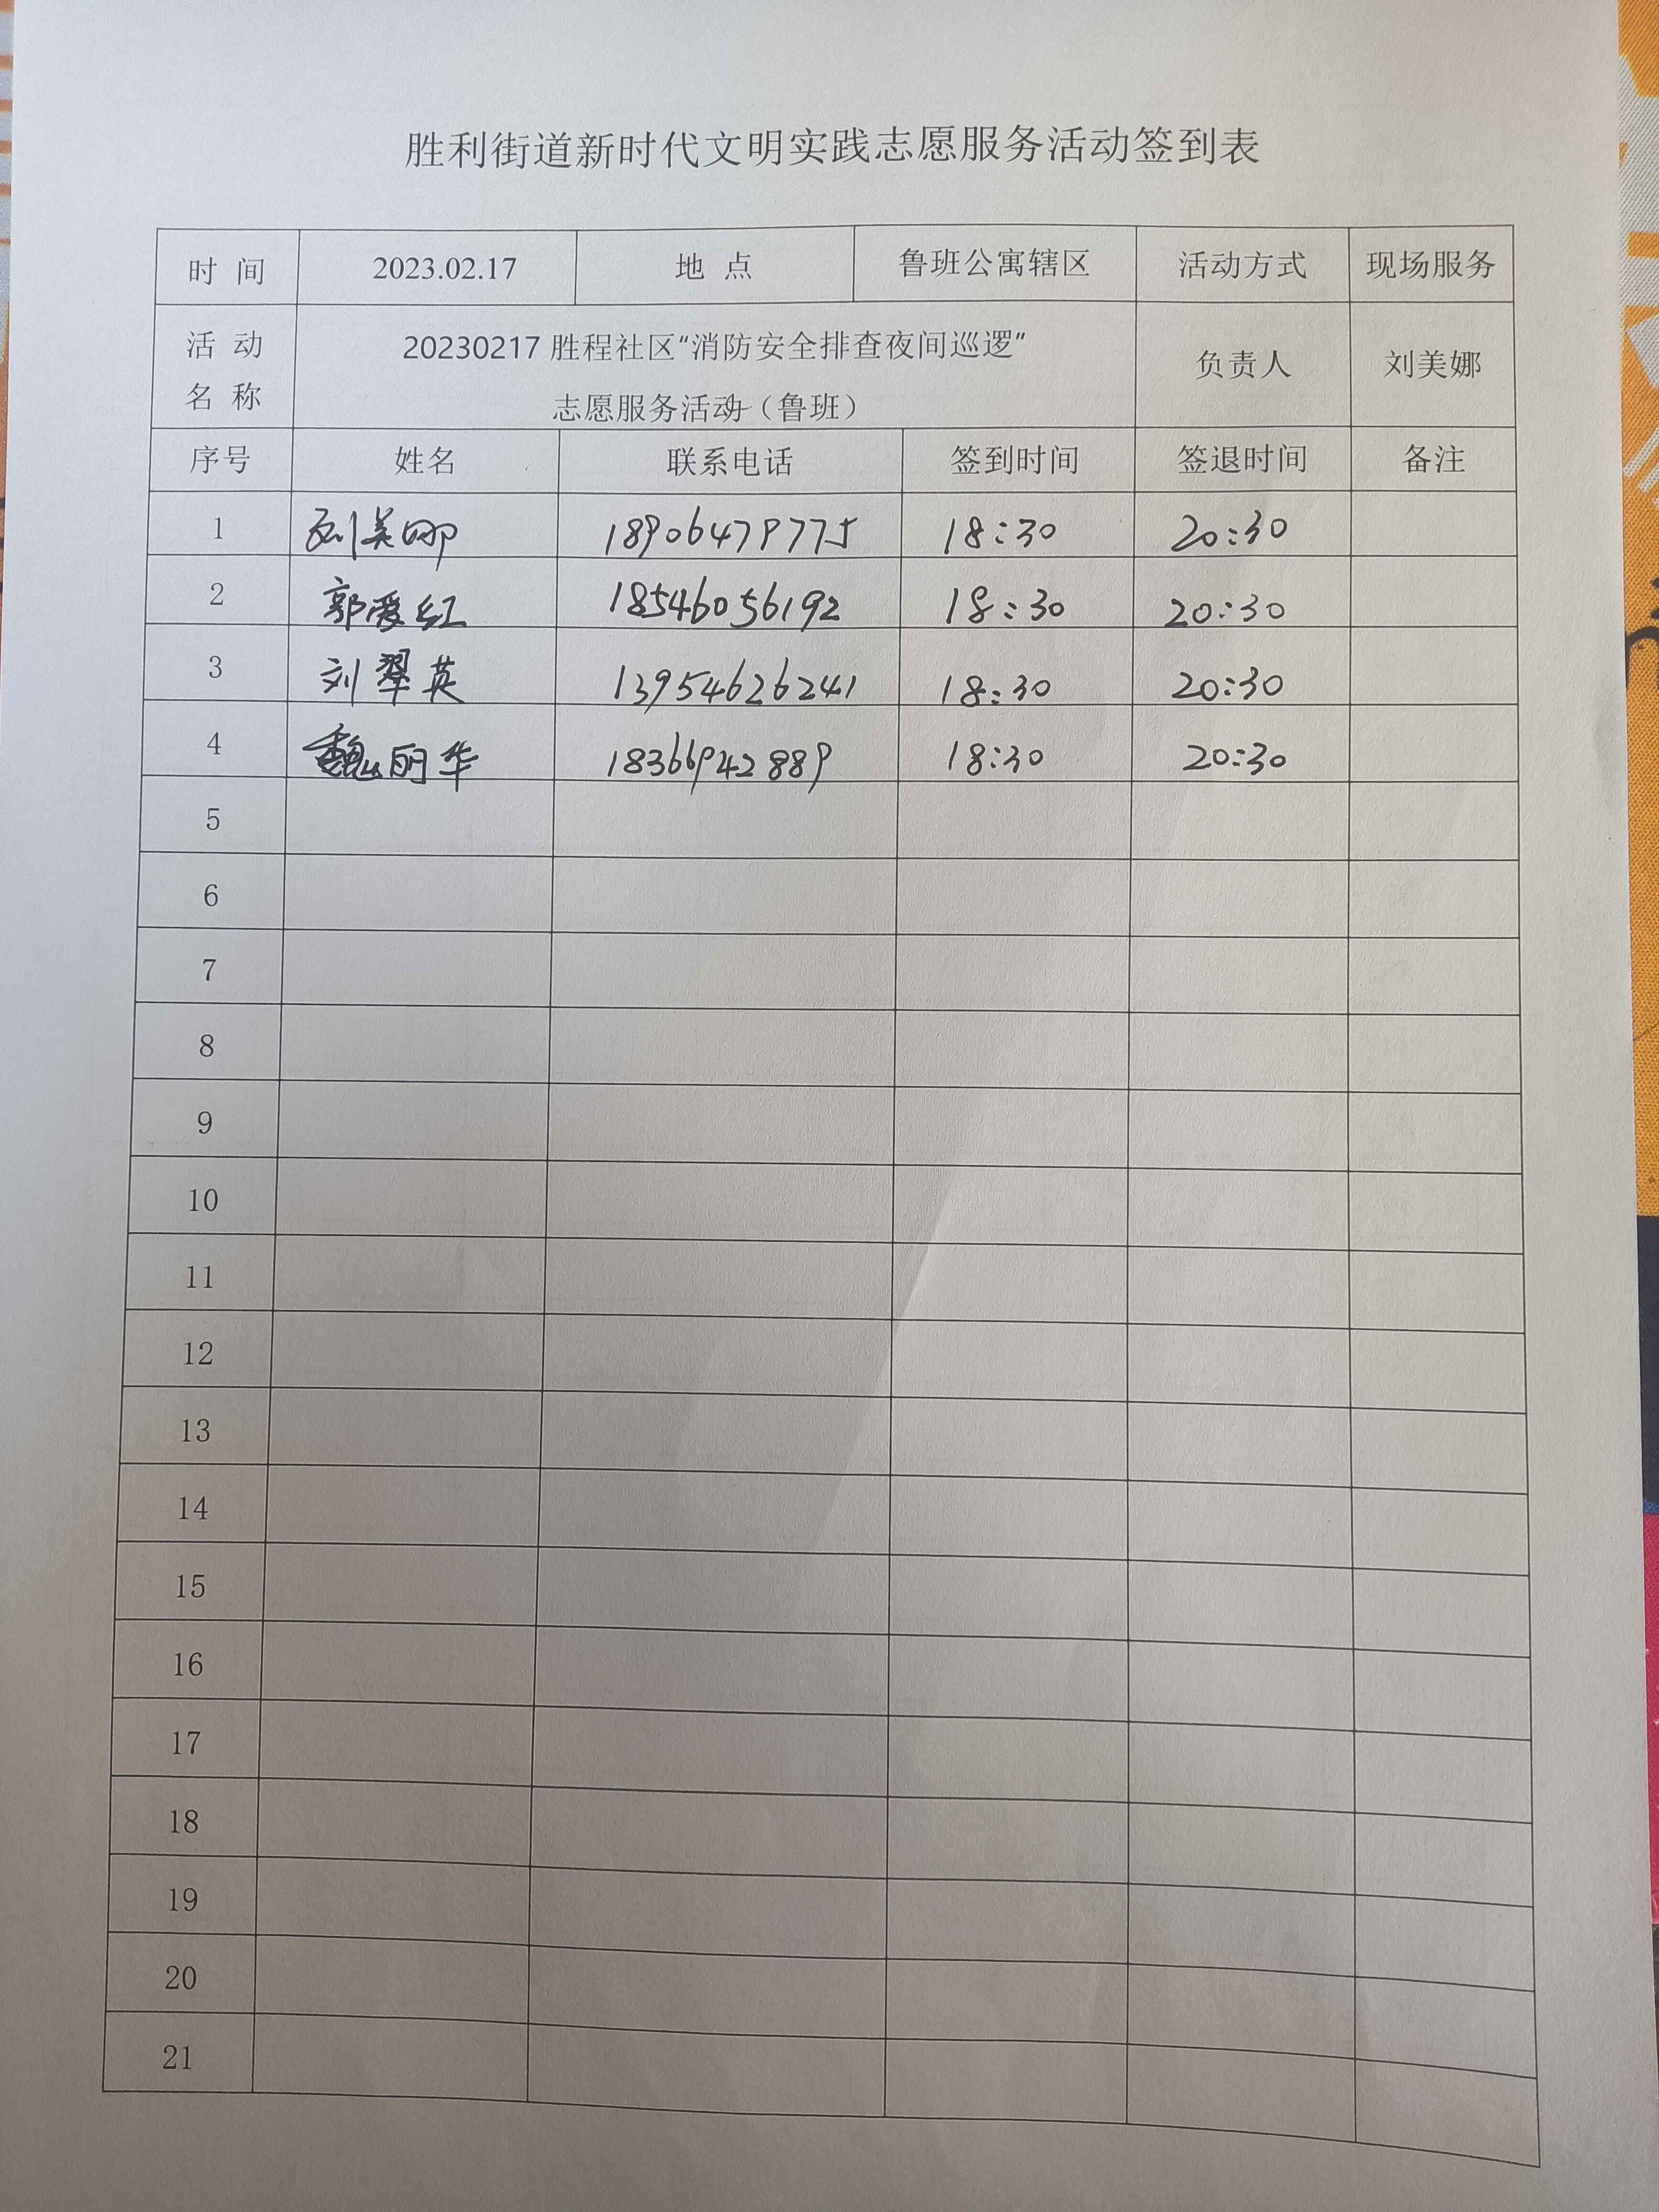 胜利街道新时代文明实践志愿服务活动签到表
时 间 2023.02.17 地 点 鲁班公寓辖区 活动方式 现场服务
活 动 名 称 20230217 胜程社区“消防安全排查夜间巡逻” 负责人 刘美娜
志愿服务活动（鲁班）
序号 姓名 联系电话 签到时间 签退时间 备注
1 刘美娜 18906479775 18:30 20:30
2 郭爱红 18546056192 18:30 20:30
3 刘翠英 13954626241 18:30 20:30
4 魏丽华 18366942889 18:30 20:30
5
6
7
8
9
10
11
12
13
14
15
16
17
18
19
20
21